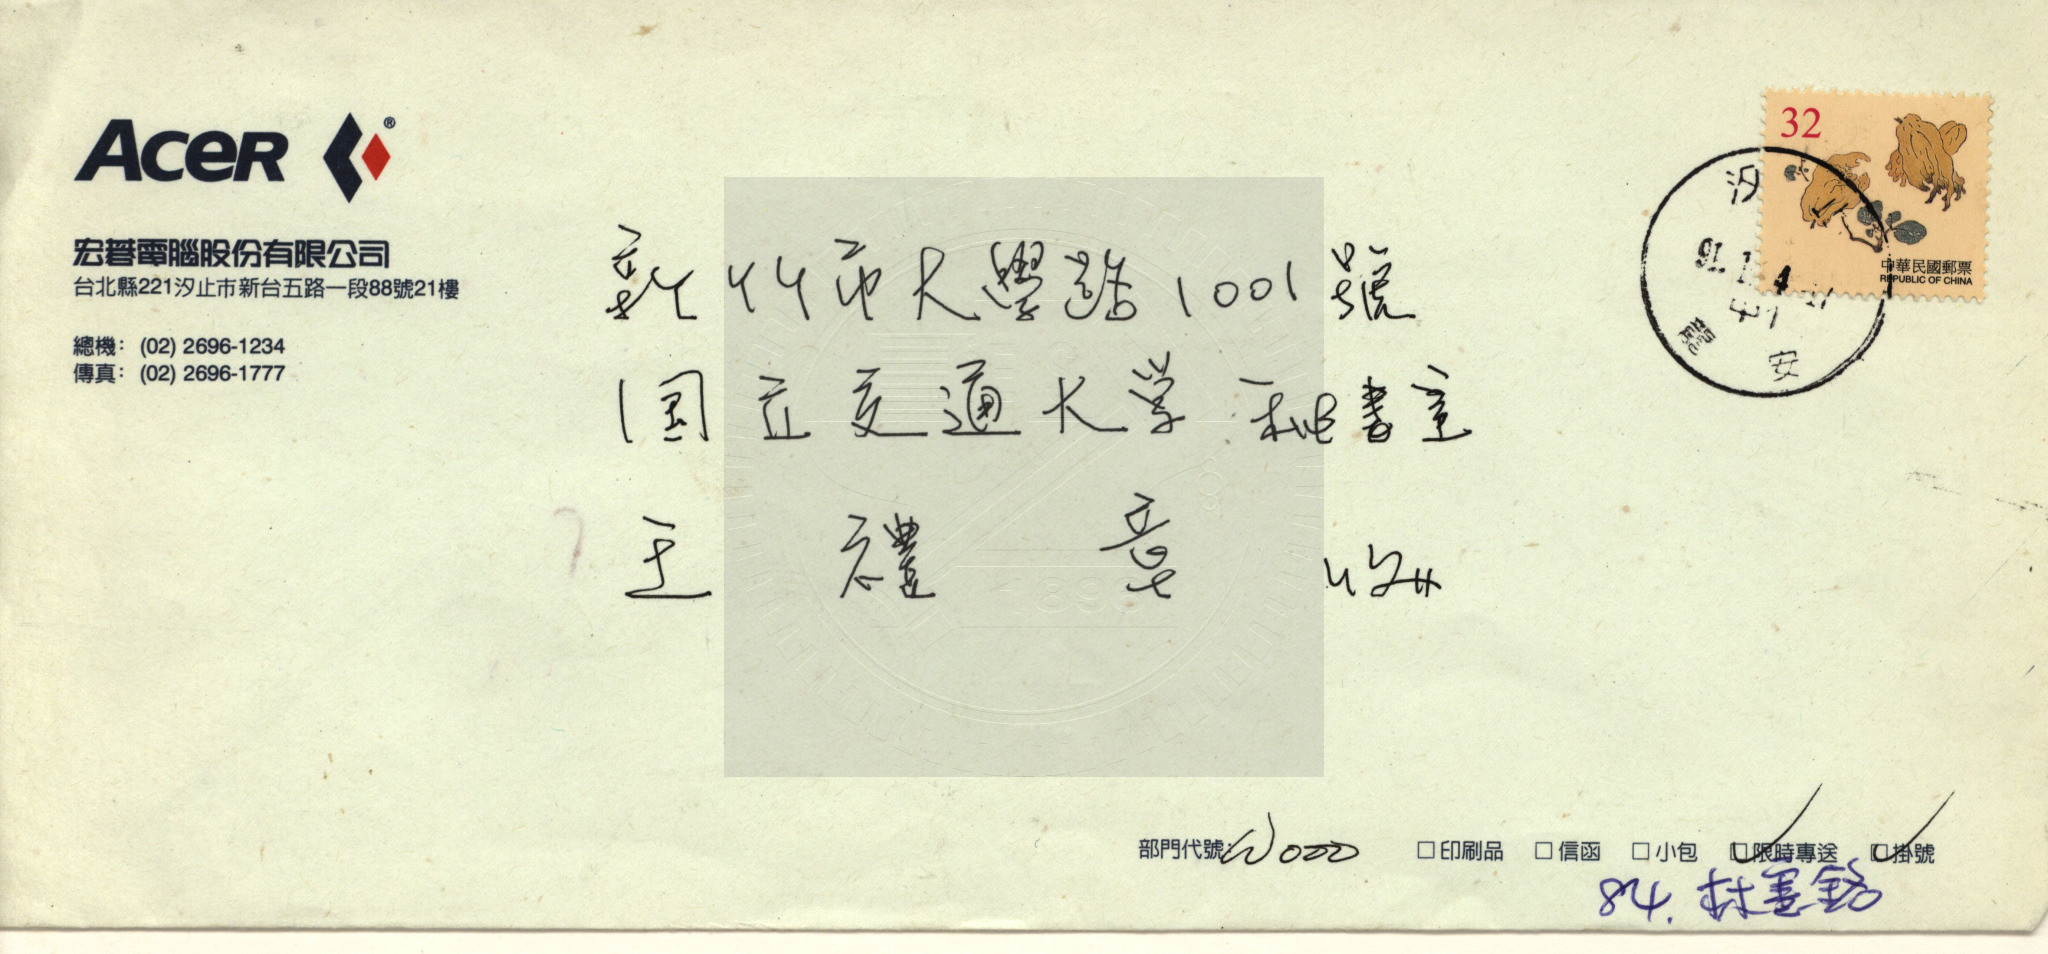 Acer ®
宏碁電腦股份有限公司
台北縣221汐止市新台五路一段88號21樓
總機: (02) 2696-1234
傳真: (02) 2696-1777
32
中華民國郵票
REPUBLIC OF CHINA
汐
91.
安
新竹市大學路1001號
国立交通大学 秘書室
王禮章 收
1896
部門代號: W000
□印刷品 □信函 □小包 □限時專送 □掛號
84. 林憲銘